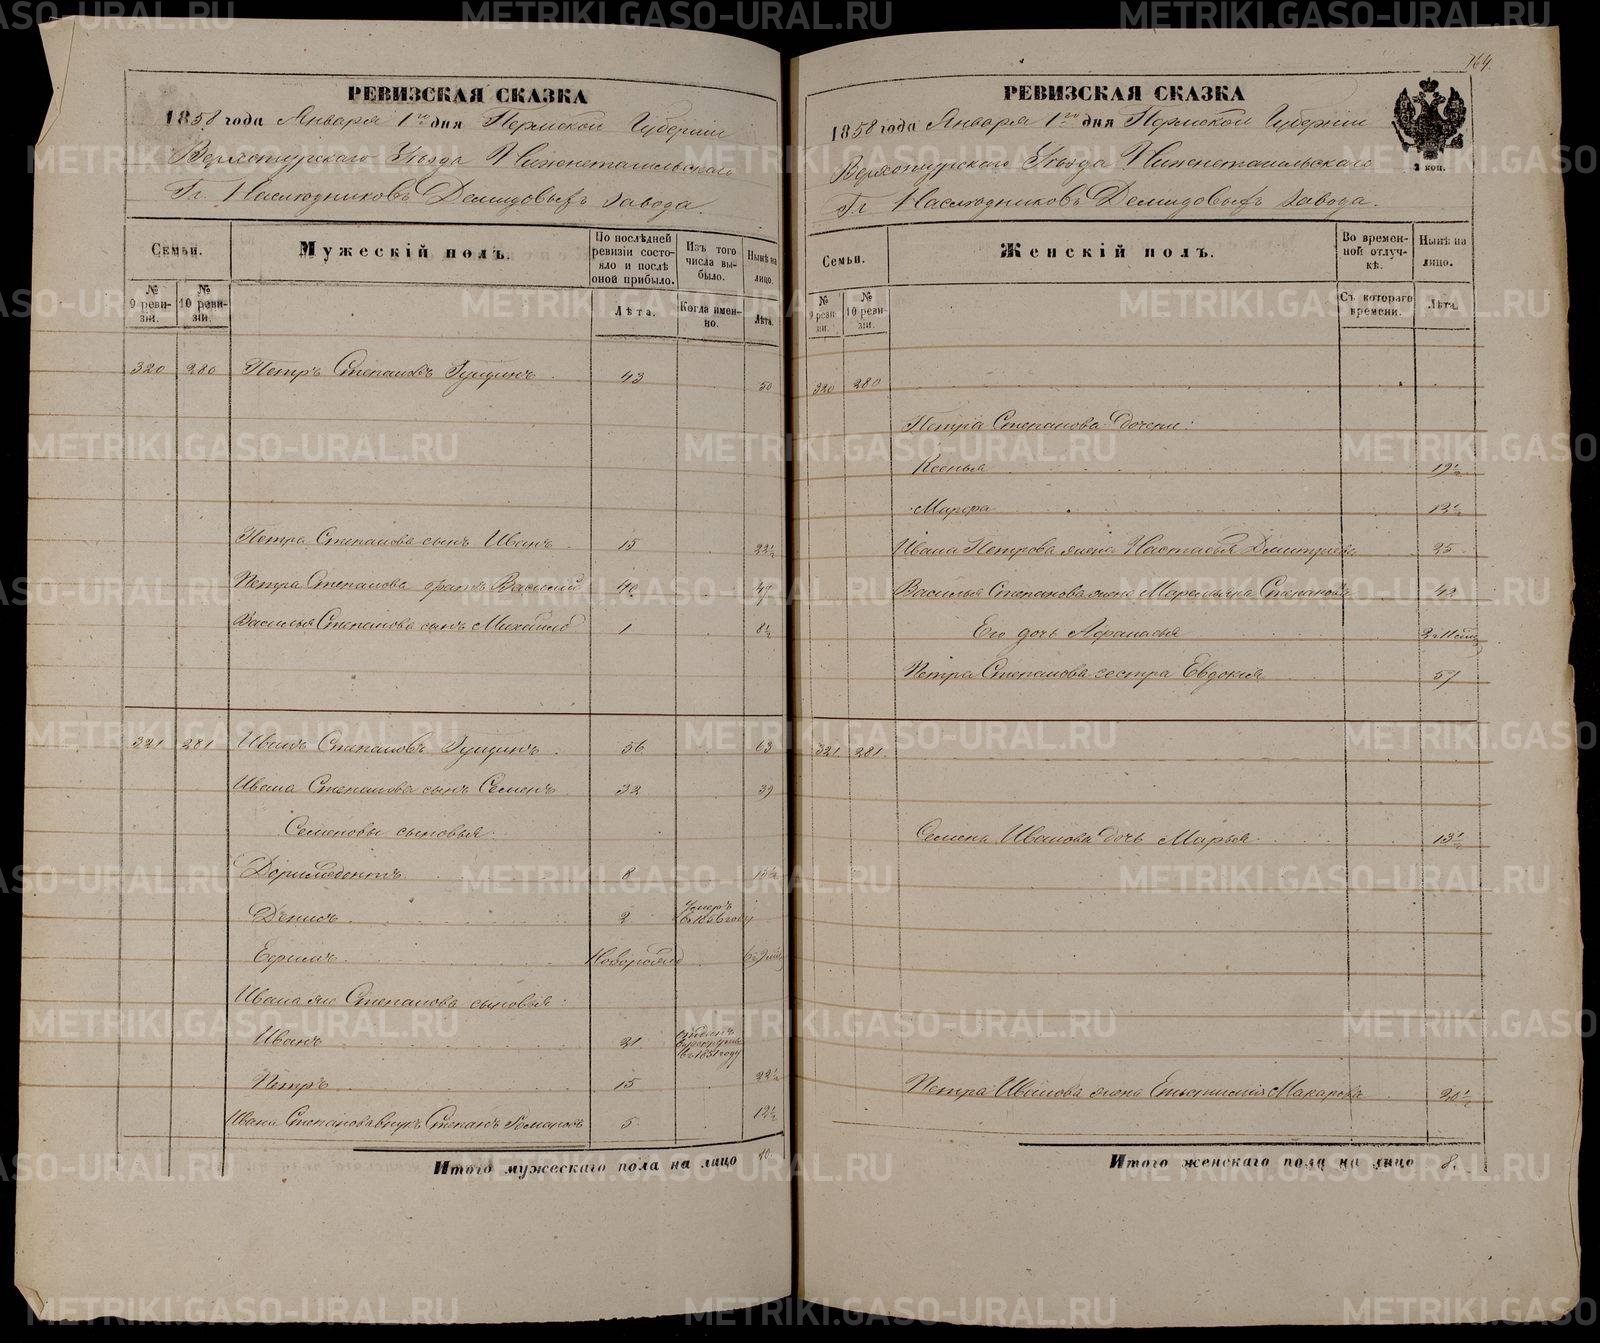 РЕВИЗСКАЯ СКАЗКА
1858 года Января 1го дня Пермской Губернии
Верхотурского Уѣзда Нижнетагильскаго
Гг. Наслѣдниковъ Демидовыхъ завода.
Семьи.
Мужескій полъ.
По послѣдней ревизіи состояло и послѣ оной прибыло.
Изъ того числа выбыло.
Нынѣ на лицо.
№ 9 ревизіи.
№ 10 ревизіи.
Лѣта.
Когда именно.
Лѣта.
320 280 Петръ Степановъ 43 50
Петра Степанова сынъ Иванъ 15 22½
Петра Степанова братъ Василий 40 47
Василья Степанова сынъ Михайло 1 8½
321 281 Иванъ Степановъ 56 63
Ивана Степанова сынъ Семенъ 32 39
Семеновы сыновья:
Доримедонтъ 8 15½
Денисъ 2 умеръ въ 1856 году
Ефимъ Новорожд
Ивана же Степанова сыновья:
Иванъ 21 въ 1851 году
Петръ 15 22½
Ивана Степанова внукъ Степанъ Романовъ 5 12½
Итого мужескаго пола на лицо 10.
164
РЕВИЗСКАЯ СКАЗКА
1858 года Января 1го дня Пермской Губернии
Верхотурского Уѣзда Нижнетагильскаго
Гг Наслѣдниковъ Демидовыхъ завода.
3 коп.
Семьи.
Женскій полъ.
Во временной отлучкѣ.
Нынѣ на лицо.
№ 9 ревизіи.
№ 10 ревизіи.
Съ котораго времени.
Лѣта.
320 280
Петра Степанова дочери:
Ксенья 19½
Марфа 13½
Ивана Петрова жена Настасья Дмитриева 25
Василья Степанова жена Маремьяна Степанова 42
Его дочь Афанасья
Петра Степанова сестра Евдокия 57
321 281
Семена Иванова дочь Марья 13½
Петра Иванова жена Макарова 20½
Итого женскаго пола на лицо 8.
METRIKI.GASO-URAL.RU